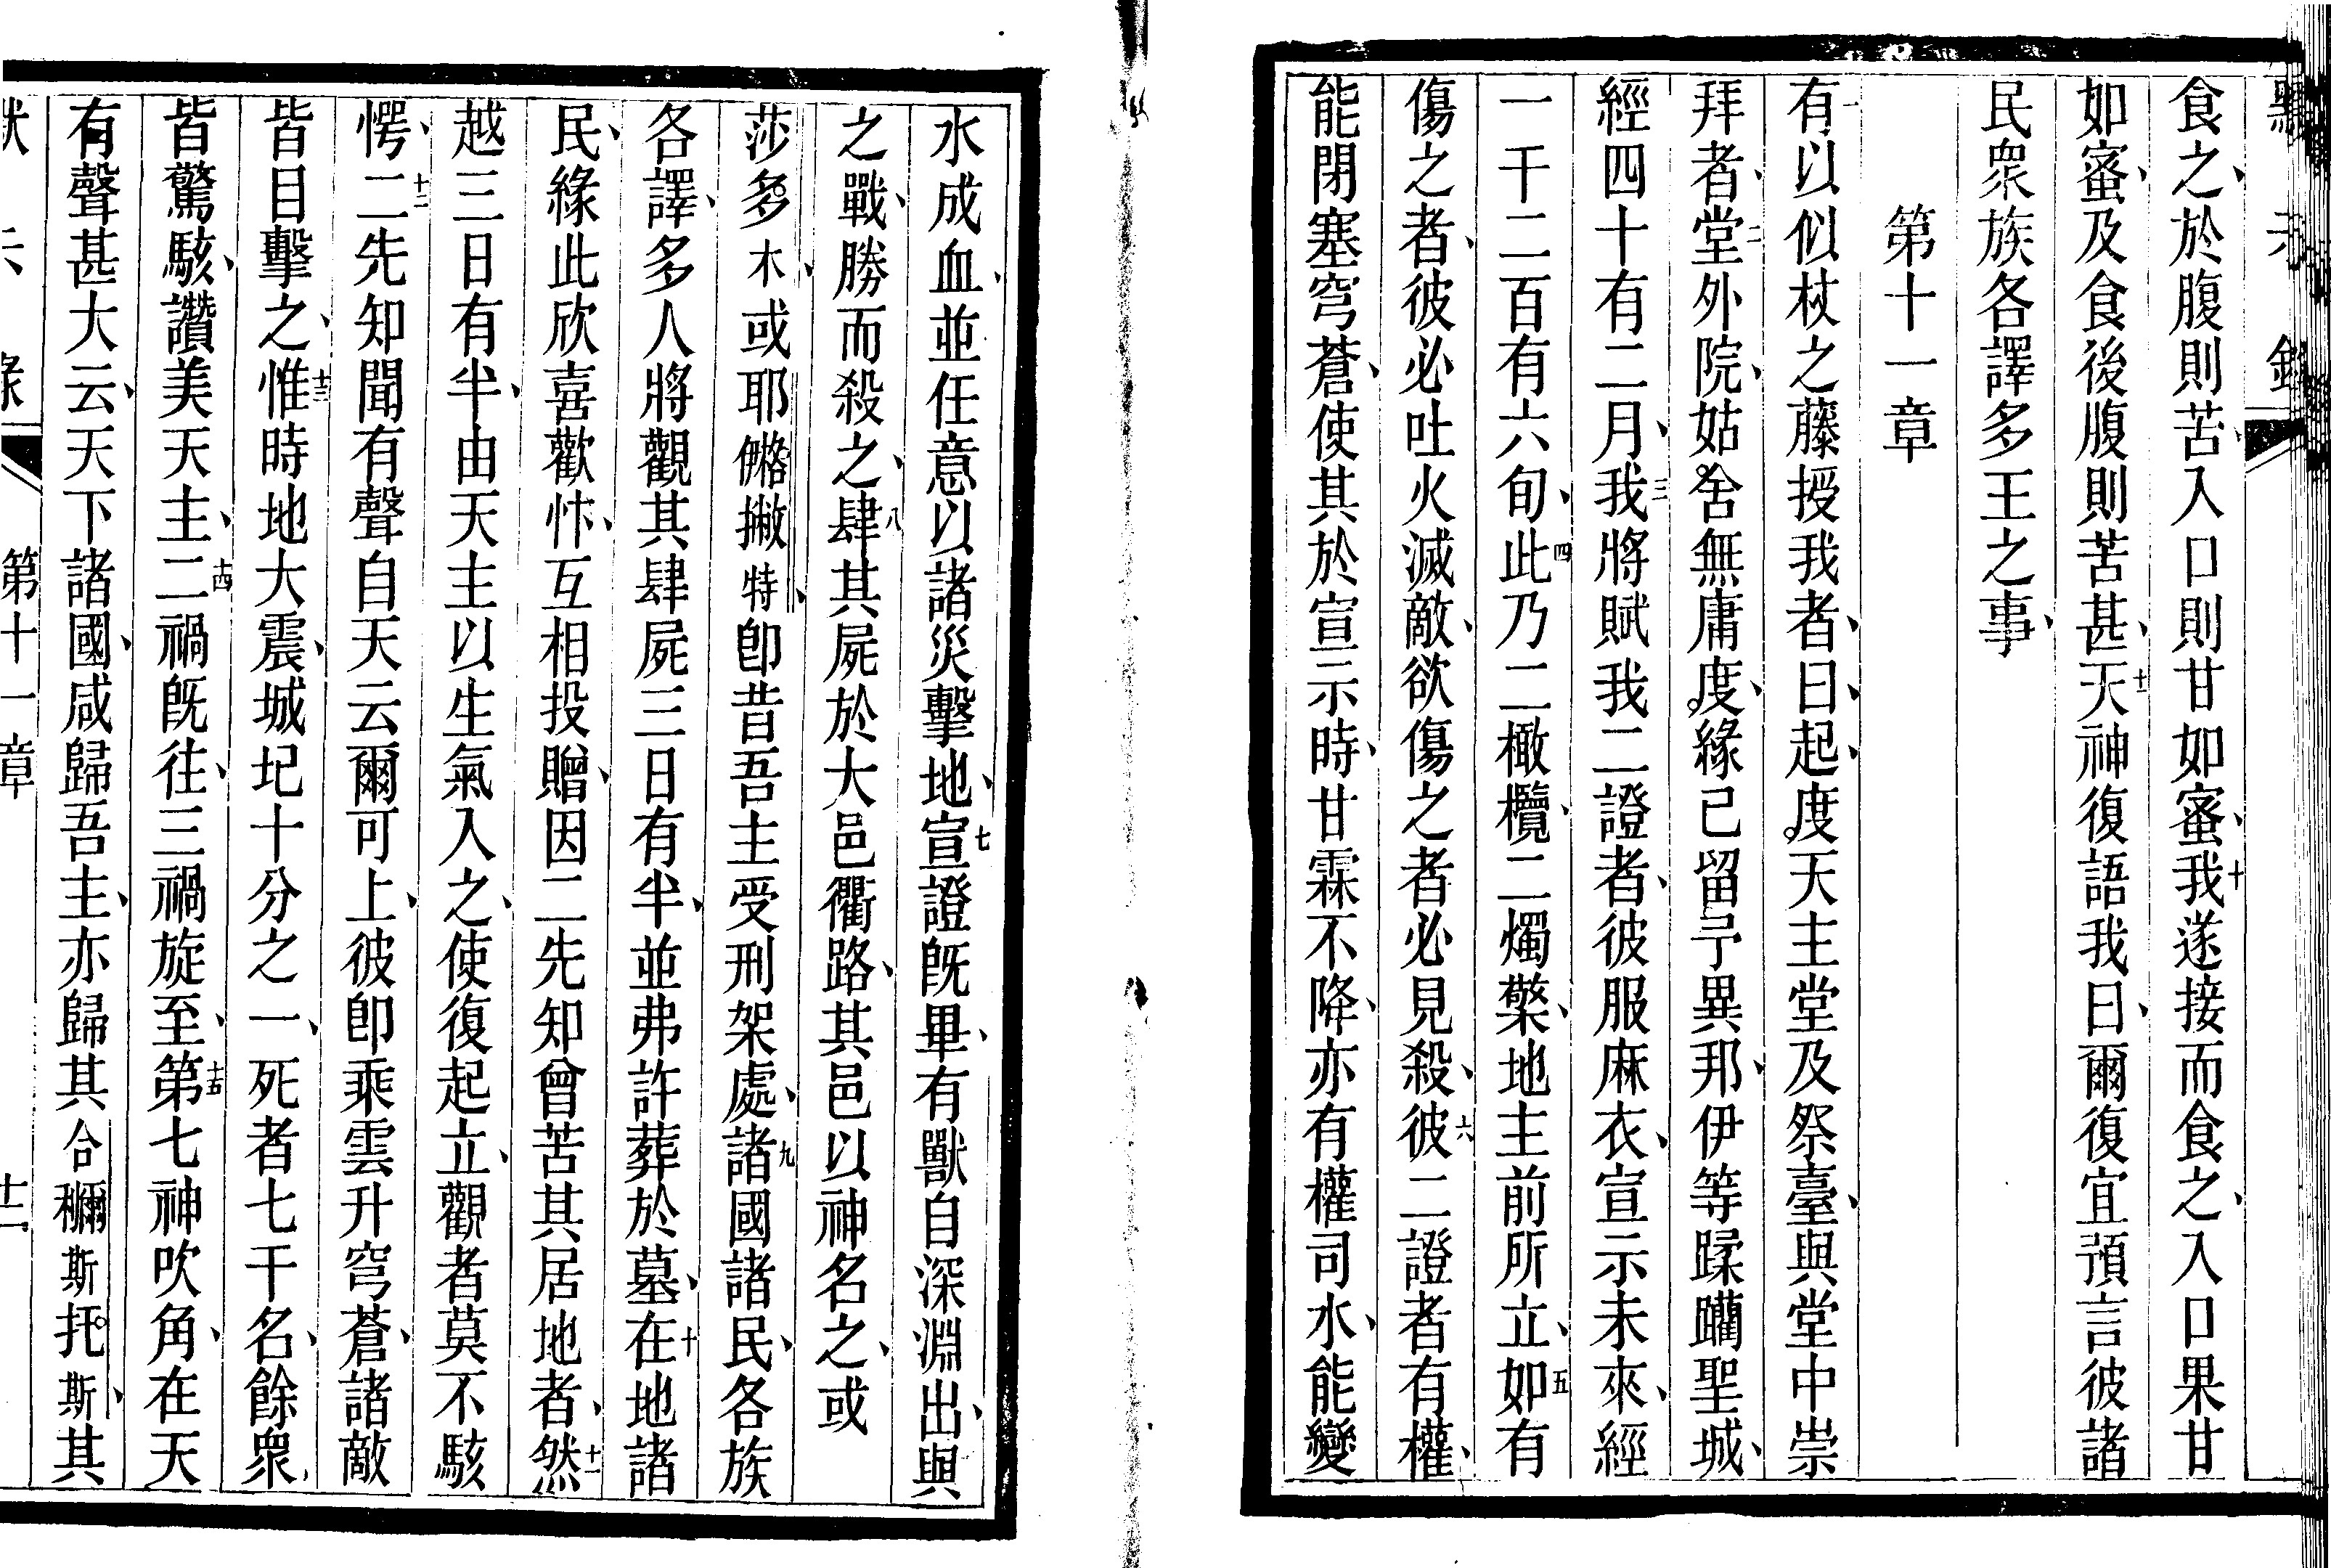 默示錄
食之、於腹則苦、入口則甘如蜜、十我遂接而食之、入口果甘
如蜜、及食後腹則苦甚、十一天神復語我曰、爾復宜預言彼諸
民衆族各譯多王之事、
第十一章
一有以似杖之藤授我者、曰、起、度天主堂及祭臺、與堂中崇
拜者、二堂外院、姑舍無庸度、緣已留予異邦、伊等蹂躪聖城、
經四十有二月、三我將賦我二證者、彼服麻衣、宣示未來、經
一千二百有六旬、四此乃二橄欖、二燭檠、地主前所立、五如有
傷之者、彼必吐火滅敵、欲傷之者必見殺、六彼二證者有權、
能閉塞穹蒼、使其於宣示時、甘霖不降、亦有權司水、能變
水成血、並任意以諸災擊地、七宣證旣畢、有獸自深淵出、與
之戰、勝而殺之、八肆其屍於大邑衢路、其邑以神名之、或
莎多木、或耶𠌥撇特、卽昔吾主受刑架處、九諸國諸民、各族
各譯、多人將觀其肆屍三日有半、並弗許葬於墓、十在地諸
民、緣此欣喜歡忭、互相投贈、因二先知曾苦其居地者、十一然
越三日有半、由天主以生氣入之、使復起立、觀者莫不駭
愕、十二二先知聞有聲自天云、爾可上、彼卽乘雲升穹蒼、諸敵
皆目擊之、十三惟時地大震、城圮十分之一、死者七千名、餘衆
皆驚駭、讚美天主、十四二禍旣往、三禍旋至、十五第七神吹角、在天
有聲甚大云、天下諸國、咸歸吾主、亦歸其合穪斯托斯、其
第十一章
十二